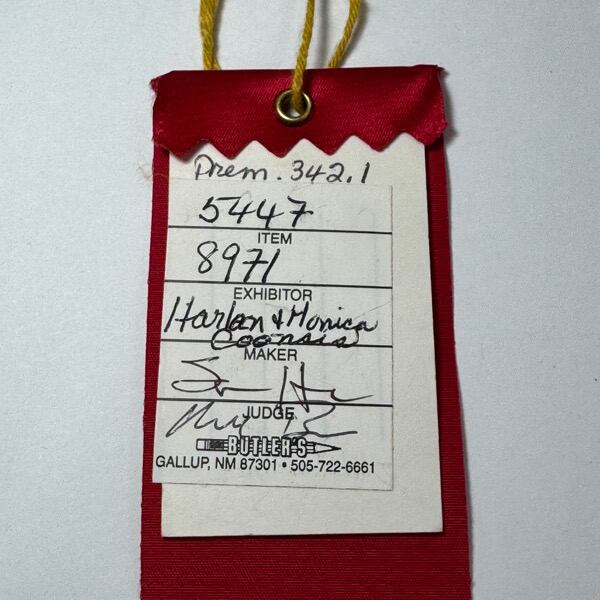 Prem. 342.1
5447
ITEM
8971
EXHIBITOR
Harlan & Monica
Coonsis
MAKER
JUDGE
BUTLER'S
GALLUP, NM 87301 • 505-722-6661